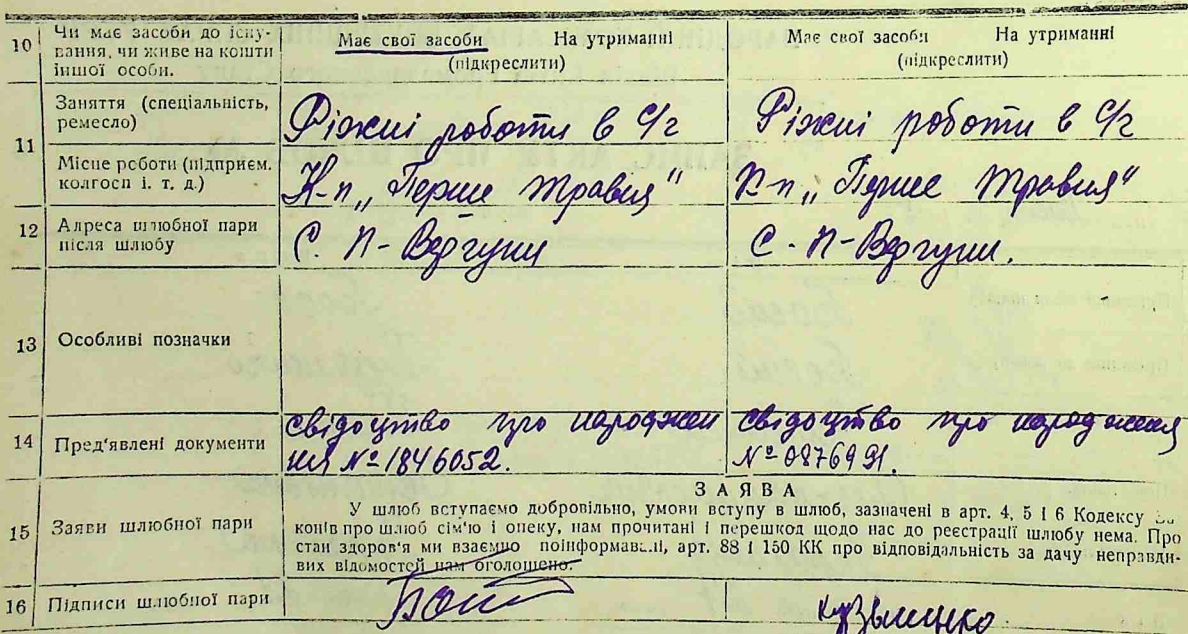 10 Чи має засоби до існу-
вання, чи живе на кошти
іншої особи.
Має свої засоби На утриманні
(підкреслити)
Має свої засоби На утриманні
(підкреслити)
11 Заняття (спеціальність,
ремесло)
Ріжні роботи в С/г
Ріжні роботи в С/г
Місце роботи (підприєм.
колгосп і. т. д.)
К-п „Перше травня"
К-п „Перше травня"
12 Адреса шлюбної пари
після шлюбу
С. П-Вергуни
С. П-Вергуни.
13 Особливі позначки
14 Пред'явлені документи
свідоцтво про народжен
ня № 1846052.
свідоцтво про народження
№ 0876991.
ЗАЯВА
15 Заяви шлюбної пари
У шлюб вступаємо добровільно, умови вступу в шлюб, зазначені в арт. 4, 5 і 6 Кодексу за-
конів про шлюб сім'ю і опеку, нам прочитані і перешкод щодо нас до реєстрації шлюбу нема. Про
стан здоров'я ми взаємно поінформавалі, арт. 88 і 150 КК про відповідальність за дачу неправди-
вих відомостей нам оголошено.
16 Підписи шлюбної пари